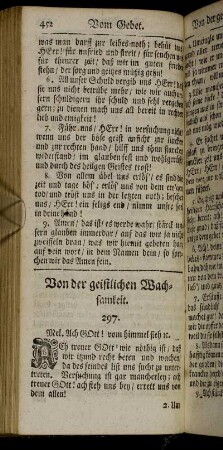 452 Vom Gebet.
was man darff zur leibes-noth; behüt uns,
HErr! für unfried und streit/ für seuchen und
für theurer zeit/ daß wir im guten frieden
stehn/ der sorg und geitzes müßig gehn!
6. All unser Schuld vergib uns HErr! daß
sie uns nicht betrübe mehr/ wie wir auch unsern
schuldigern ihr schuld und fehl vergeben
gern; zu dienen mach uns all bereit in rechter lieb
und einigkeit!
7. Führ uns/ HErr! in versuchung nicht/
wenn uns der böse geist anficht zur lincken
und zur rechten hand/ hilff uns thun starcken
widerstand/ im glauben fest und wohlgerüst/
und durch des heiligen Geistes trost!
8. Von allem übel uns erlös/ es sind die
zeit und tage bös/ erlös uns von dem ewigen
tod/ und tröst uns in der letzten noth; bescher
uns/ HErr! ein seligs end/ nimm unsre seel
in deine händ!
9. Amen/ das ist/ es werde wahr/ stärck unsern
glauben immerdar/ auf das wir ja nicht
zweiffeln dran/ was wir hiemit gebeten han
auf dein wort/ in dem Namen dein/ so sprechen
wir das Amen fein.
Von der geistlichen Wachsamkeit.
297.
Mel. Ach GOtt! vom himmel sieh ic.
Ach treuer GOtt! wie nöthig ist/ daß
wir itzund recht beten und wachen/
da des feindes list uns sucht zu untertreten.
Versuchung ist gar mancherley; ach
treuer GOtt! ach steh uns bey/ errett uns von
dem allen!
2. Un